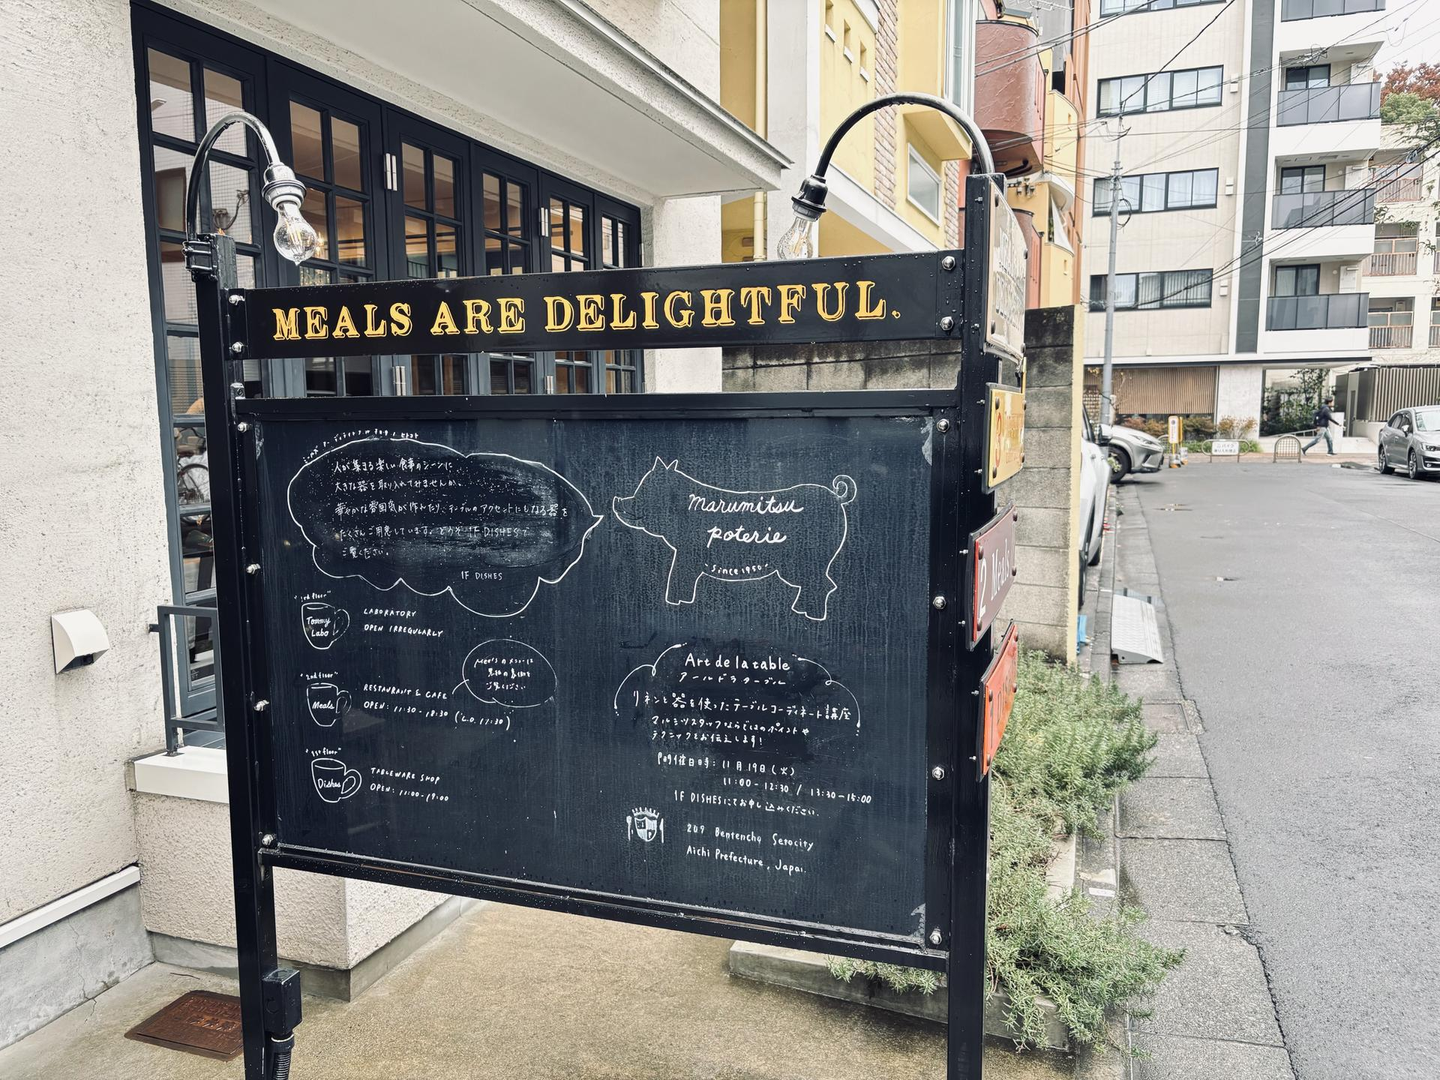 MEALS ARE DELIGHTFUL.
人が集まる楽しい食事のシーンに
大きな器を取り入れてみませんか。
華やかな雰囲気が作れたり、テーブルのアクセントにもなる器を
たくさんご用意しています。どうぞ 1F DISHESで
ご覧ください。
1F DISHES
"3rd floor"
Tommy
Labo
LABORATORY
OPEN IRREGULARLY
Mealsのメニューは
ご覧ください
"2nd floor"
Meals
RESTAURANT & CAFE
OPEN: 11:30-18:30 (L.O. 17:30)
"1st floor"
Dishes
TABLEWARE SHOP
OPEN: 11:00-19:00
marumitsu
poterie
Since 1950
Art de la table
アールドゥターブル
リネンと器を使ったテーブルコーディネート講座
マルミツスタッフならではのポイントや
テクニックをお伝えします!
開催日時: 11月19日(火)
11:00-12:30 / 13:30-15:00
1F DISHESにてお申し込みください。
209 Bentencho Setocity
Aichi Prefecture, Japan.
2 Meals